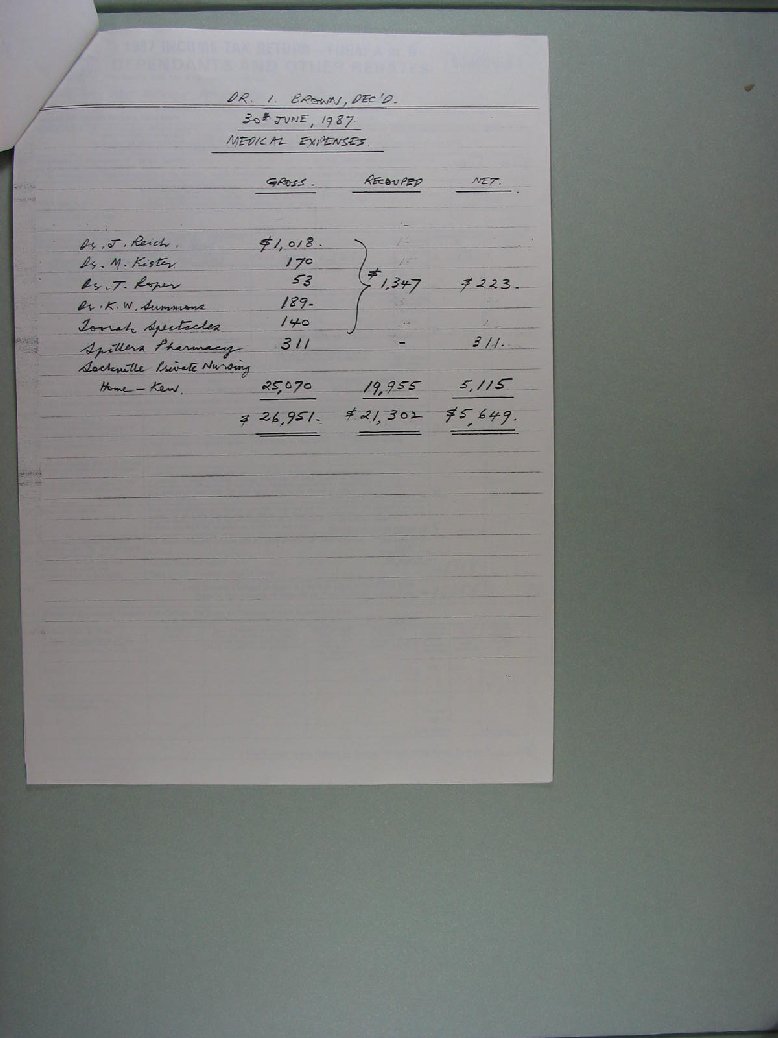 DR. I. BROWN, DEC'D.
30th JUNE, 1987.
MEDICAL EXPENSES.
GROSS. RECOUPED NET.
Dr. J. Reich. $1,018.
Dr. M. Kister 170
Dr. T. Roper 53 $1,347 $223.
Dr. K. W. Summons 189-
Toorak Spectacles 140
Spillers Pharmacy 311 - 311.
Private Nursing
Home - Kew. 25,070 19,955 5,115
$26,951. $21,302 $5,649.